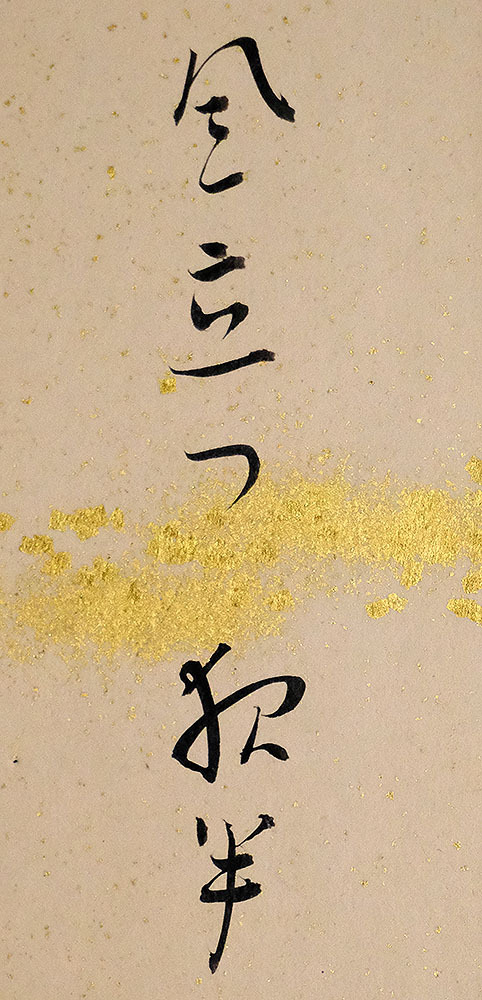 風立つ夜半